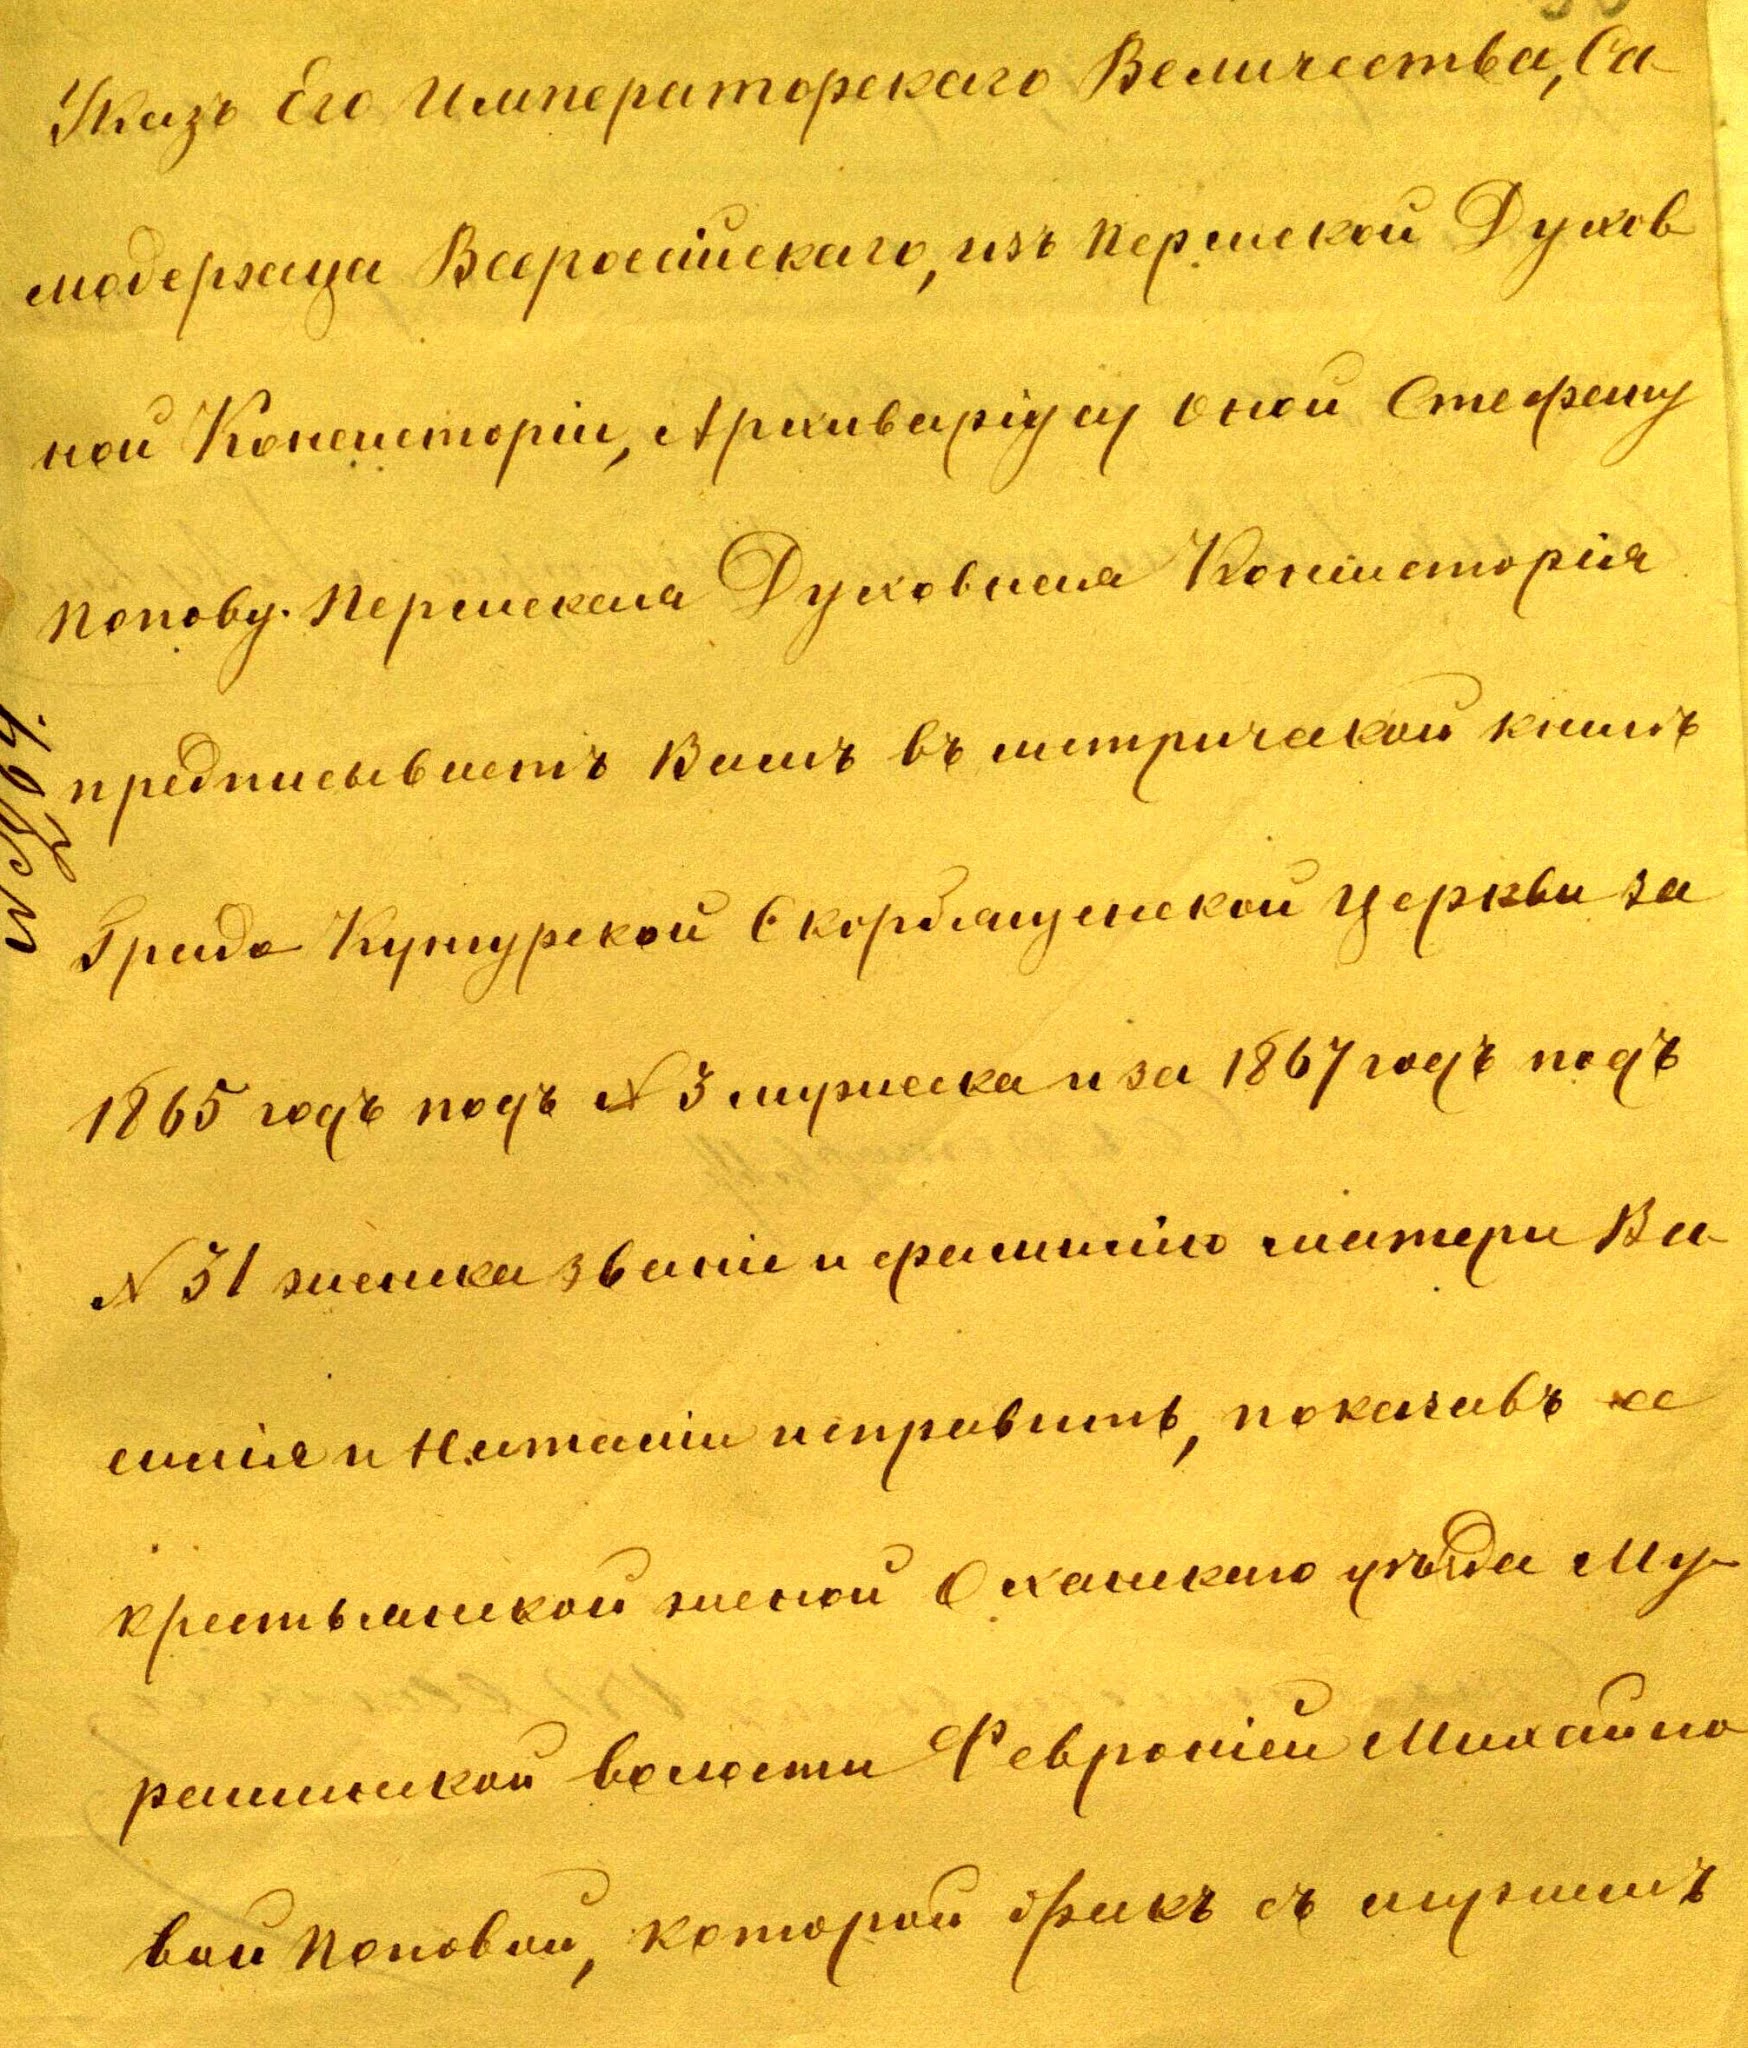 Указъ Его Императорскаго Величества, Са-
модержца Всероссійскаго, изъ Пермской Духов-
ной Консисторіи, Архиваріусу оной Стефану
Попову. Пермская Духовная Консисторія
предписываетъ Вамъ въ метрической книгѣ
Градо Кунгурской Скорбященской церкви за
1865 годъ подъ № 3 мужеска и за 1867 годъ подъ
№ 31 женска званіе и фамилію матери Ва-
силія и Наталіи исправить, показавъ ее
крестьянской женой Оханскаго уѣзда Му-
                                                                                                                                                                                                                                                                                                                   
вой Поповой, которой бракъ съ мужемъ